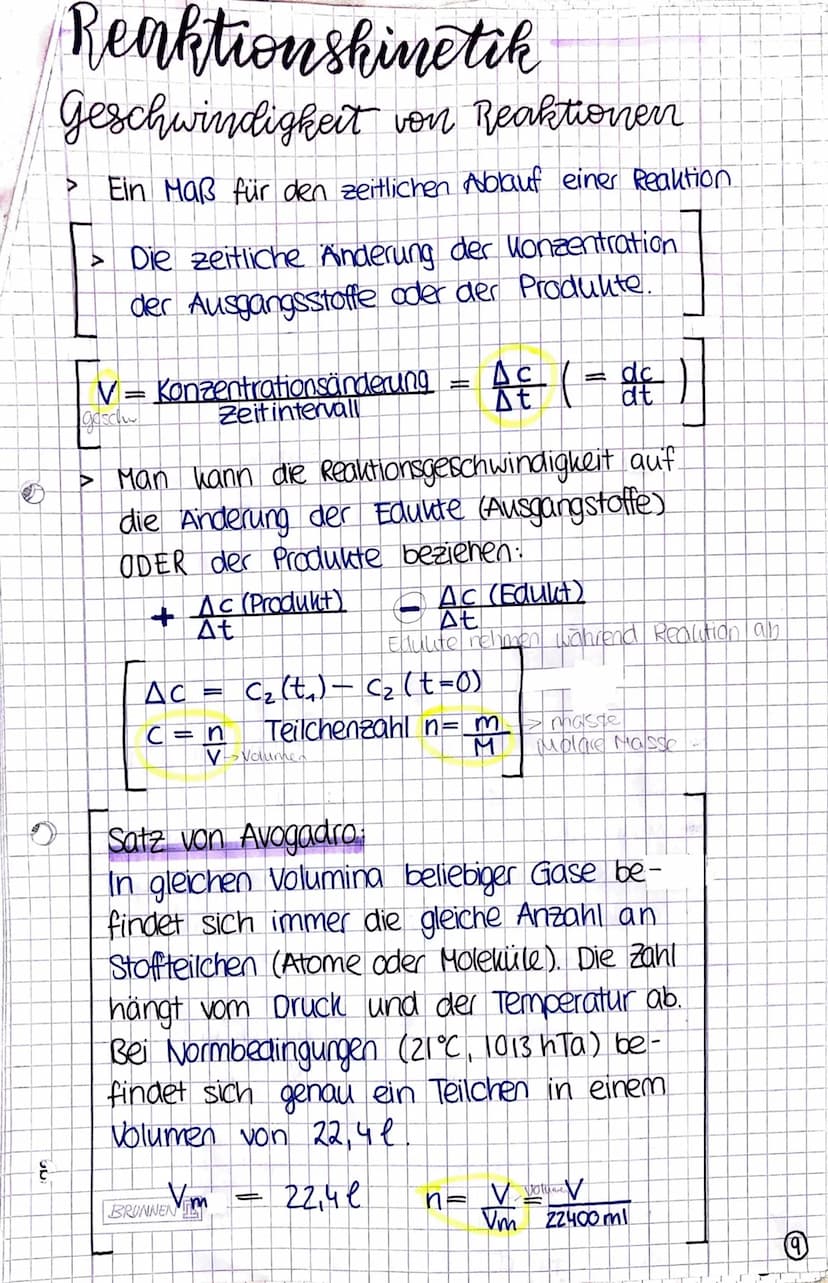 Reaktionskinetik
Geschwindigkeit von Reaktionen
> Ein Maß für den zeitlichen Ablauf einer Reaktion
> Die zeitliche Änderung der Konzentration
der Ausgangsstoffe oder der Produkte.
V = Konzentrationsänderung / Zeitintervall = Δc / Δt ( = dc / dt )
geschw
> Man kann die Reaktionsgeschwindigkeit auf
die Änderung der Edukte (Ausgangstoffe)
ODER der Produkte beziehen:
+ Δc (Produkt) / Δt − Δc (Edukt) / Δt
Edukte nehmen während Reaktion ab
Δc = c₂(t₁) − c₂(t=0)
c = n / V Teilchenzahl n = m / M > masse
-> Volumen Molare Masse
Satz von Avogadro:
In gleichen Volumina beliebiger Gase be-
findet sich immer die gleiche Anzahl an
Stoffteilchen (Atome oder Moleküle). Die Zahl
hängt vom Druck und der Temperatur ab.
Bei Normbedingungen (21°C, 1013 hTa) be-
findet sich genau ein Teilchen in einem
Volumen von 22,4 l.
Vm = 22,4 l n = V / Vm = V / 22400 ml
BRUNNEN
9